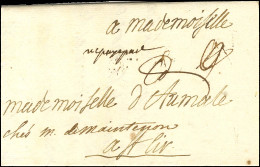 a mademoiselle
mademoiselle d'Aumale
ches m. de maintenon
a st Cir